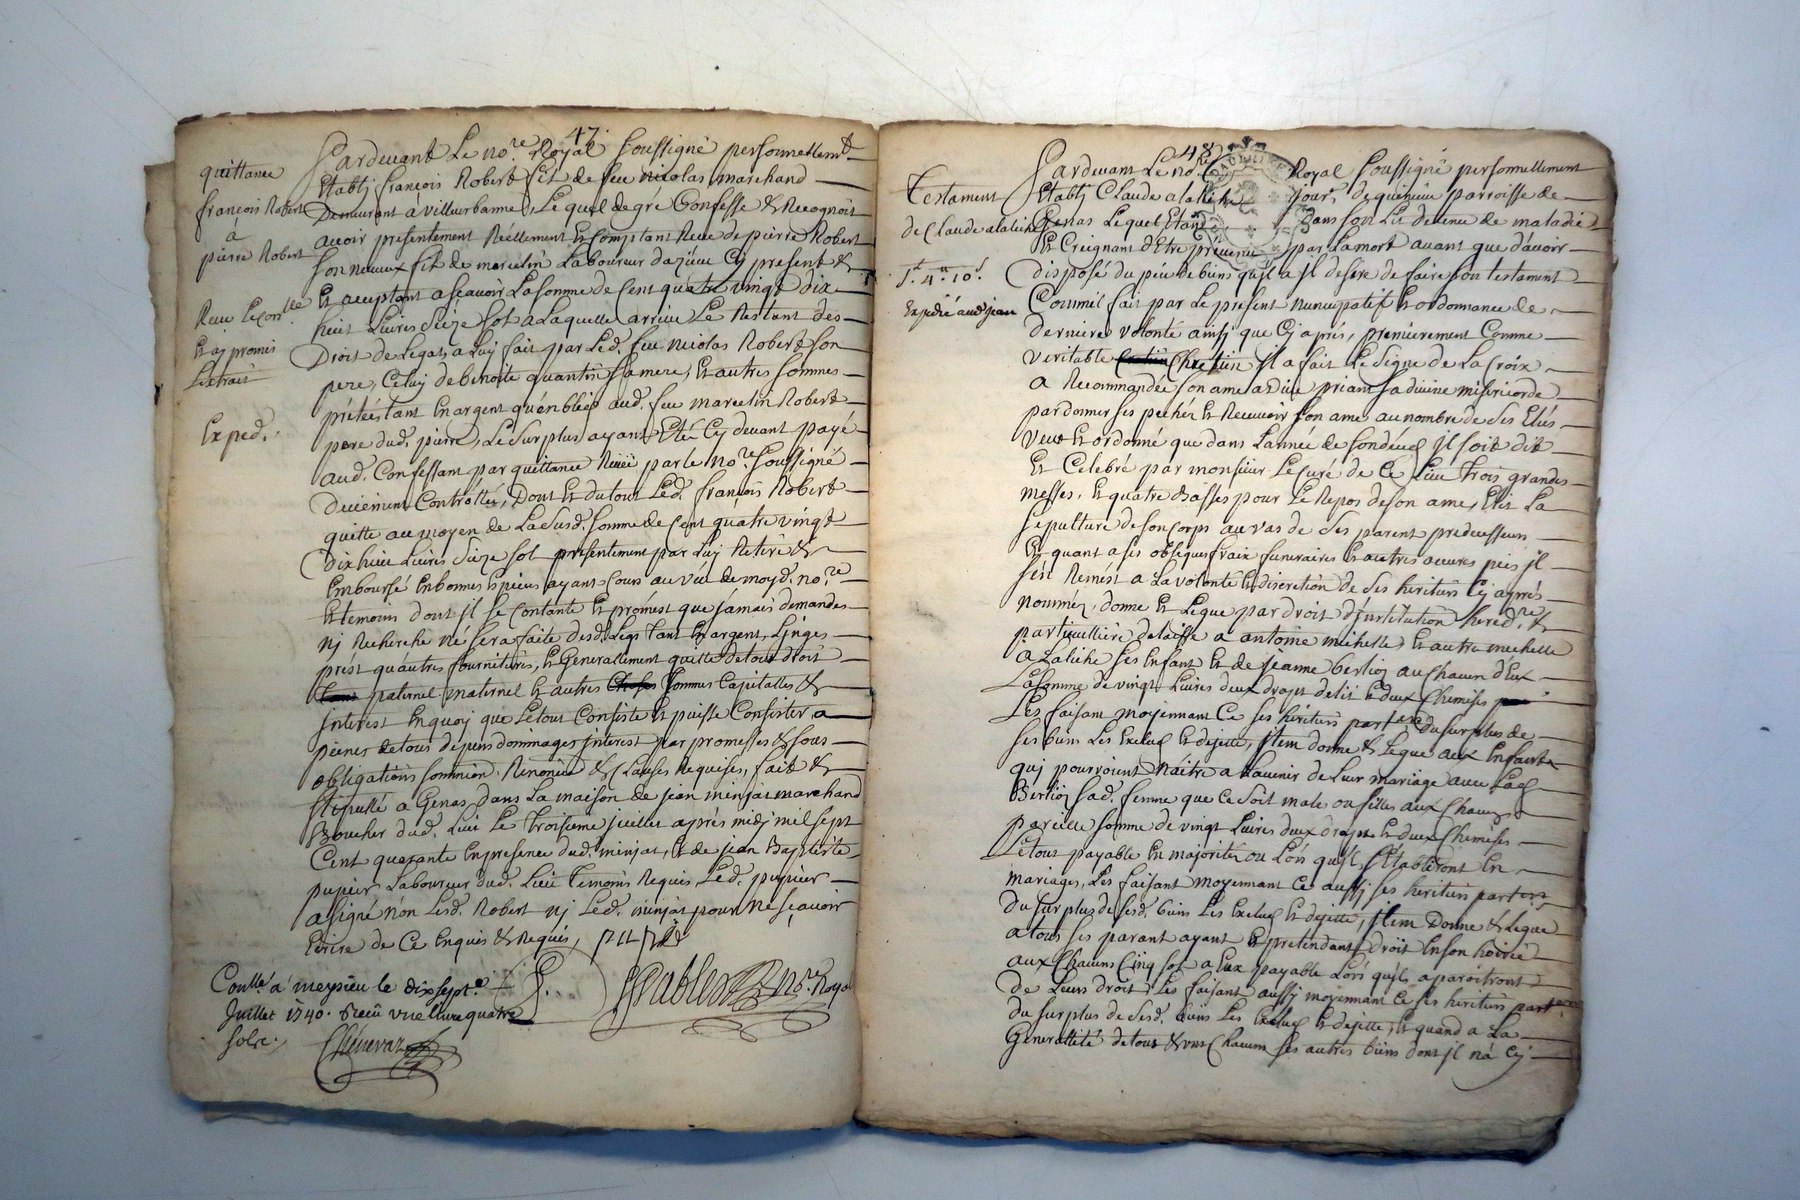 47.
quittance
françois Robert
a
pierre Robert
Exped.
Pardevant Le no.re Royal Soussigné personnellemt
Etablj françois Robert fil de feu nicolas marchand
Demeurant à villeurbanne, Lequel de gré Confesse & Recognoit
avoir presentement Réellement Et Comptant Receu de pierre Robert
son neveux fil de marcelin Laboureur dazieu Cy present &
Et acceptant a scavoir La somme de Cent quatre vingt dix
huit Livres Seize sol a Laquelle arrive Le Restant des
Droit de Legat a Luy fait par Led. feu nicolas Robert son
pere, Celuy de benoite quantin sa mere, Et autres sommes
prétéé, tant En argent qu'en bled aud. feu marcelin Robert
pere dud. pierre, Le surplus ayant Eté Cy devant payé
aud. Confessant par quittance par le no.re Soussigné
Deuement Controllée, Dont Et du tout Led. françois Robert
quitte au moyen de La susd. somme de Cent quatre vingt
Dix huit Livres Seize sol presentement par Luy Retiré &
Emboursé En bonnes Especes ayant Cours au veu de moyd. no.re
Et temoins dont Jl se Contante Et promest que Jamais demandes
nj Recherche ne sera faite desd. Legs tant En argent, Linges
prest qu'autres fournitures, Et Generallement quitte de tout droit
paternel maternel Et autres sommes Capitalles &
Interest En quoy que Letout Consiste Et puisse Consister, a
peines de tous depens dommages Interest par promesses & sous
obligations Renoncé & Clauses Requises, fait &
Stipullé a Genas Dans La maison de Jean minjat marchand
Boucher dud. Lieu Le troisieme Juillet après midj mil sept
Cent quarante En presence dud. minjat, Et de Jean Baptiste
pupier Laboureur dud. Lieu Temoins Requis Led. pupier
a signé non Lesd. Robert nj Led. minjat pour ne sçavoir
Ecrire de Ce Enquis & Requis,
no.re Royal
Contté à meysieu le dix sept.e
Juillet 1740. Receu une livre quatre
sols.
Chenevaz
48
Testament
de Claude alatiche
Expedié aud. Jean
Pardevant Le no. Royal Soussigné personnellement
Etablj Claude alatiche Jour. de parroisse de
Genas Lequel Etant Dans son Lit detenu de maladie
Et Creignant d'Etre prévenu par La mort avant que d'avoir
disposé du peu de biens qu'il a Jl desire de faire son testament
Comme il fait par Le present nuncupatif Et ordonnance de
derniere volonté ainsy que Cy après, premierement Comme
veritable Chretien Jl a fait Le Signe de La Croix
a Recommandée son ame a Dieu priant sa divine misericorde
pardonner ses pechés Et Recevoir son ame, au nombre de ses Elus
veut Et ordonné que dans L'année de son deuil Jl soit dit
Et Celebré par monsieur Le Curé de Ce Lieu trois grandes
messes, Et quatre basses pour Le Repos de son ame, Elit La
sepulture de son Corps au vas de ses parent predecesseurs
Et quant a ses obseques fraix funeraires Et autres œuvres pies Jl
s'en Remest a La volonté Et discretion de ses heritiers Cy après
nommés, donne Et Legue par droit d'Institution hered.re &
particulliere delaisse a antoine michelle Et autre michelle
alatiche ses Enfant Et de Jeanne berlioz a Chacun d'Eux
La somme de vingt Livres deux drapt de lit Et deux Chemises
Les faisant moyennant Ce ses heritiers du surplus de
ses biens Les Exclud Et dejette, Item donne & Legue aux Enfants
quj pourroient Naitre a L'avenir de Leur mariage avec Lad.
Berlioz sad. femme que Ce soit male ou filles aux Chacuns
pareille somme de vingt Livres deux drapt Et deux Chemises
Letout payable En majorité ou Lors qu'ils s'Etabliront En
mariages, Les faisant moyennant Ce aussj ses heritiers
Du surplus de sesd. biens Les Exclud Et dejette, Item Donne & Legue
a tous ses parant ayant Et pretendant Droit En son hoirie
aux Chacuns Cinq sol a Eux payable Lors qu'ils aparoitront
de Leurs droit, Les faisant aussy moyennant Ce ses heritiers
du surplus de sesd. biens Les Exclud Et dejette, Et quand a La
Generallité de tous Chacuns ses autres biens dont Jl n'a Cy